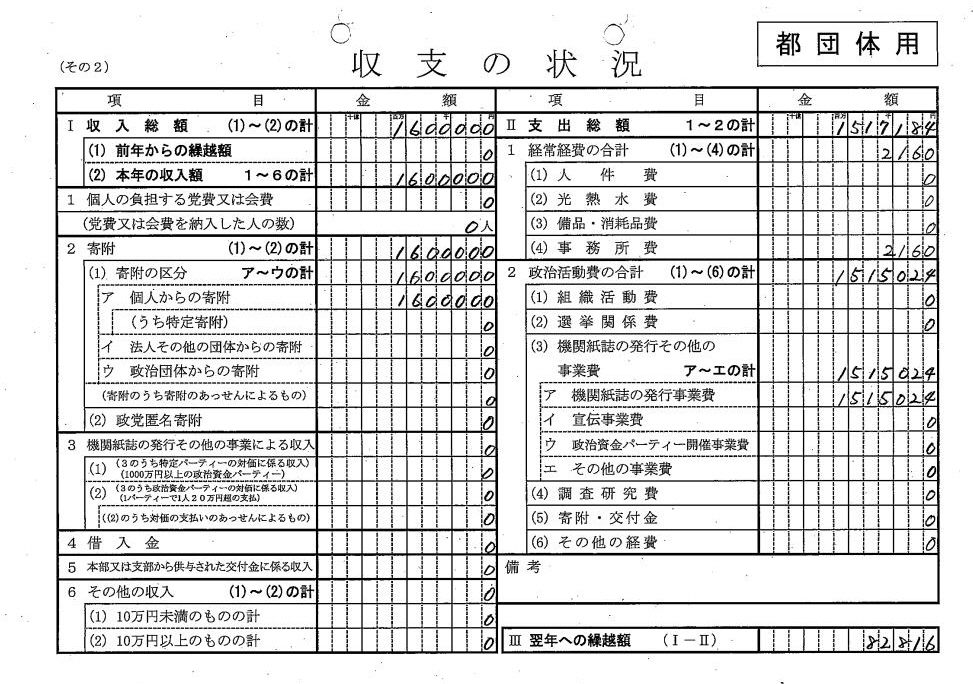 (その2)
収支の状況
都団体用
項 目 金 額
十億 百万 千 円
I 収入総額 (1)~(2)の計 1600000
(1) 前年からの繰越額 0
(2) 本年の収入額 1~6の計 1600000
1 個人の負担する党費又は会費 0
(党費又は会費を納入した人の数) 0人
2 寄附 (1)~(2)の計 1600000
(1) 寄附の区分 ア~ウの計 1600000
ア 個人からの寄附 1600000
(うち特定寄附) 0
イ 法人その他の団体からの寄附 0
ウ 政治団体からの寄附 0
(寄附のうち寄附のあっせんによるもの) 0
(2) 政党匿名寄附 0
3 機関紙誌の発行その他の事業による収入 0
(1) (3のうち特定パーティーの対価に係る収入) 0
(1000万円以上の政治資金パーティー)
(2) (3のうち政治資金パーティーの対価に係る収入) 0
(1パーティーで1人20万円超の支払)
((2)のうち対価の支払いのあっせんによるもの) 0
4 借入金 0
5 本部又は支部から供与された交付金に係る収入 0
6 その他の収入 (1)~(2)の計 0
(1) 10万円未満のものの計 0
(2) 10万円以上のものの計 0
項 目 金 額
十億 百万 千 円
II 支出総額 1~2の計 1517184
1 経常経費の合計 (1)~(4)の計 2160
(1) 人件費 0
(2) 光熱水費 0
(3) 備品・消耗品費 0
(4) 事務所費 2160
2 政治活動費の合計 (1)~(6)の計 1515024
(1) 組織活動費 0
(2) 選挙関係費 0
(3) 機関紙誌の発行その他の
事業費 ア~エの計 1515024
ア 機関紙誌の発行事業費 1515024
イ 宣伝事業費 0
ウ 政治資金パーティー開催事業費 0
エ その他の事業費 0
(4) 調査研究費 0
(5) 寄附・交付金 0
(6) その他の経費 0
備考
III 翌年への繰越額 (I-II) 82816